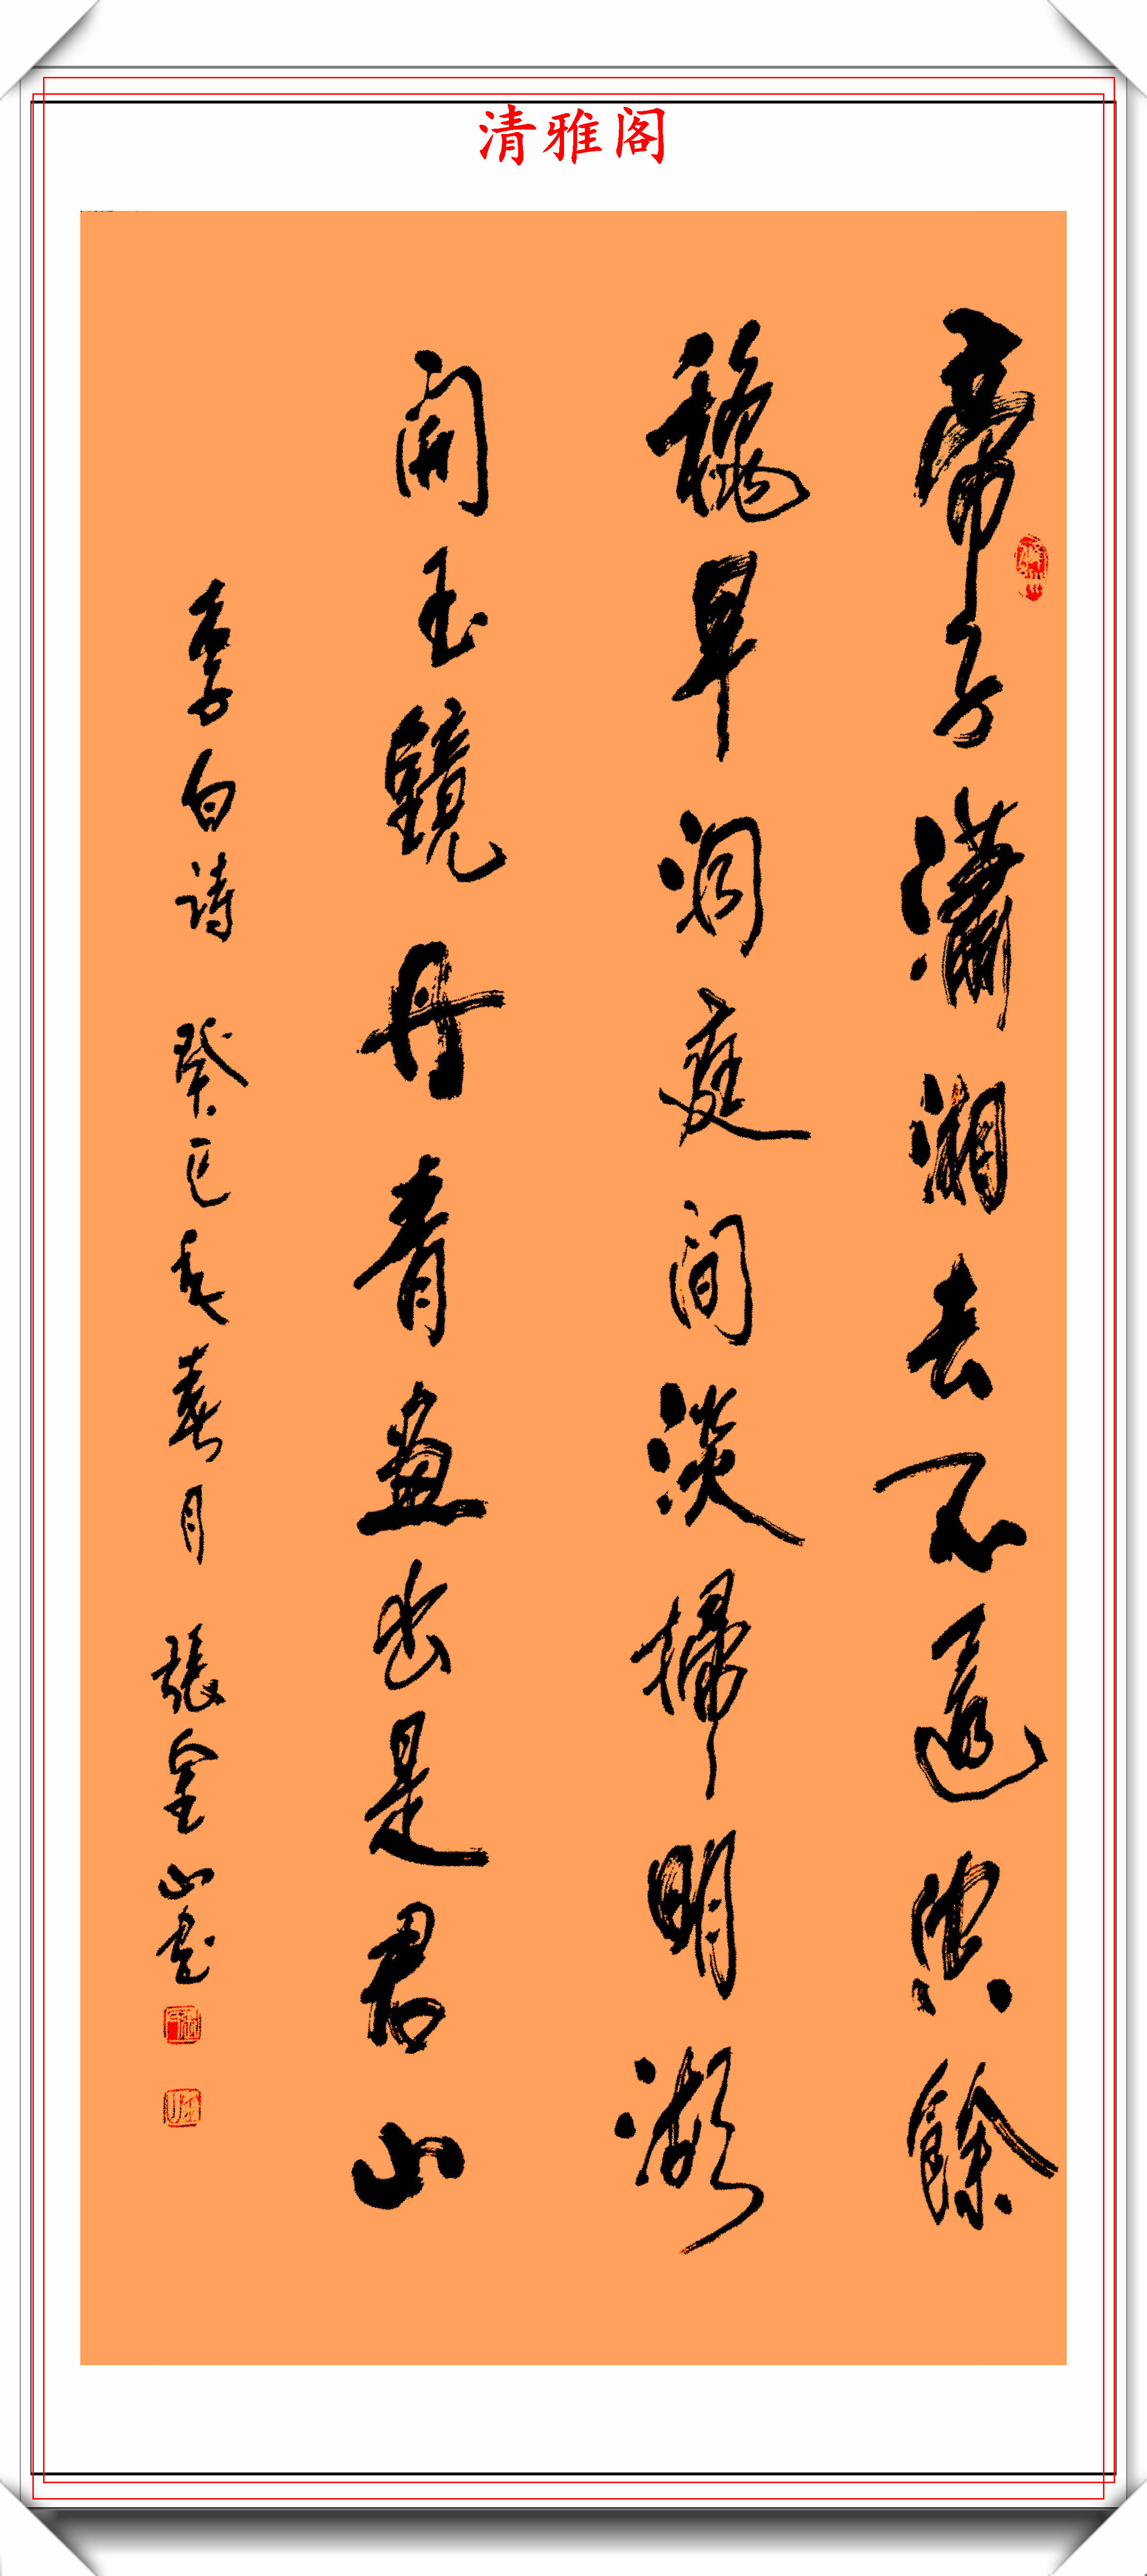 清雅阁
帝子瀟湘去不還空餘
穐草洞庭間淡掃明湖
開玉鏡丹青畫出是君山
李白詩 癸巳年春月 張金山書